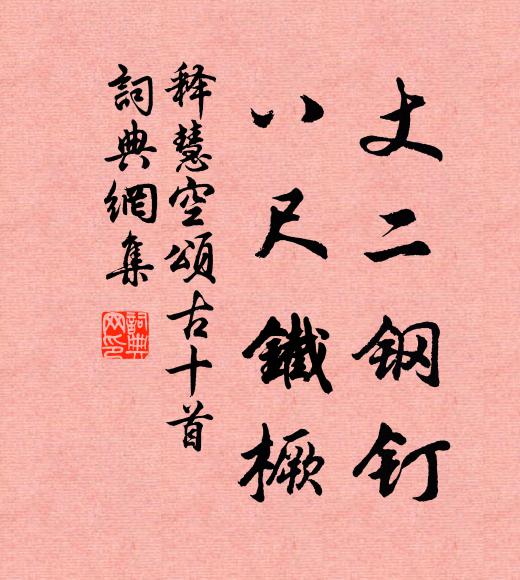 丈二钢钉
八尺鐵橛
释慧空頌古十首
詞典網集
詞典網印